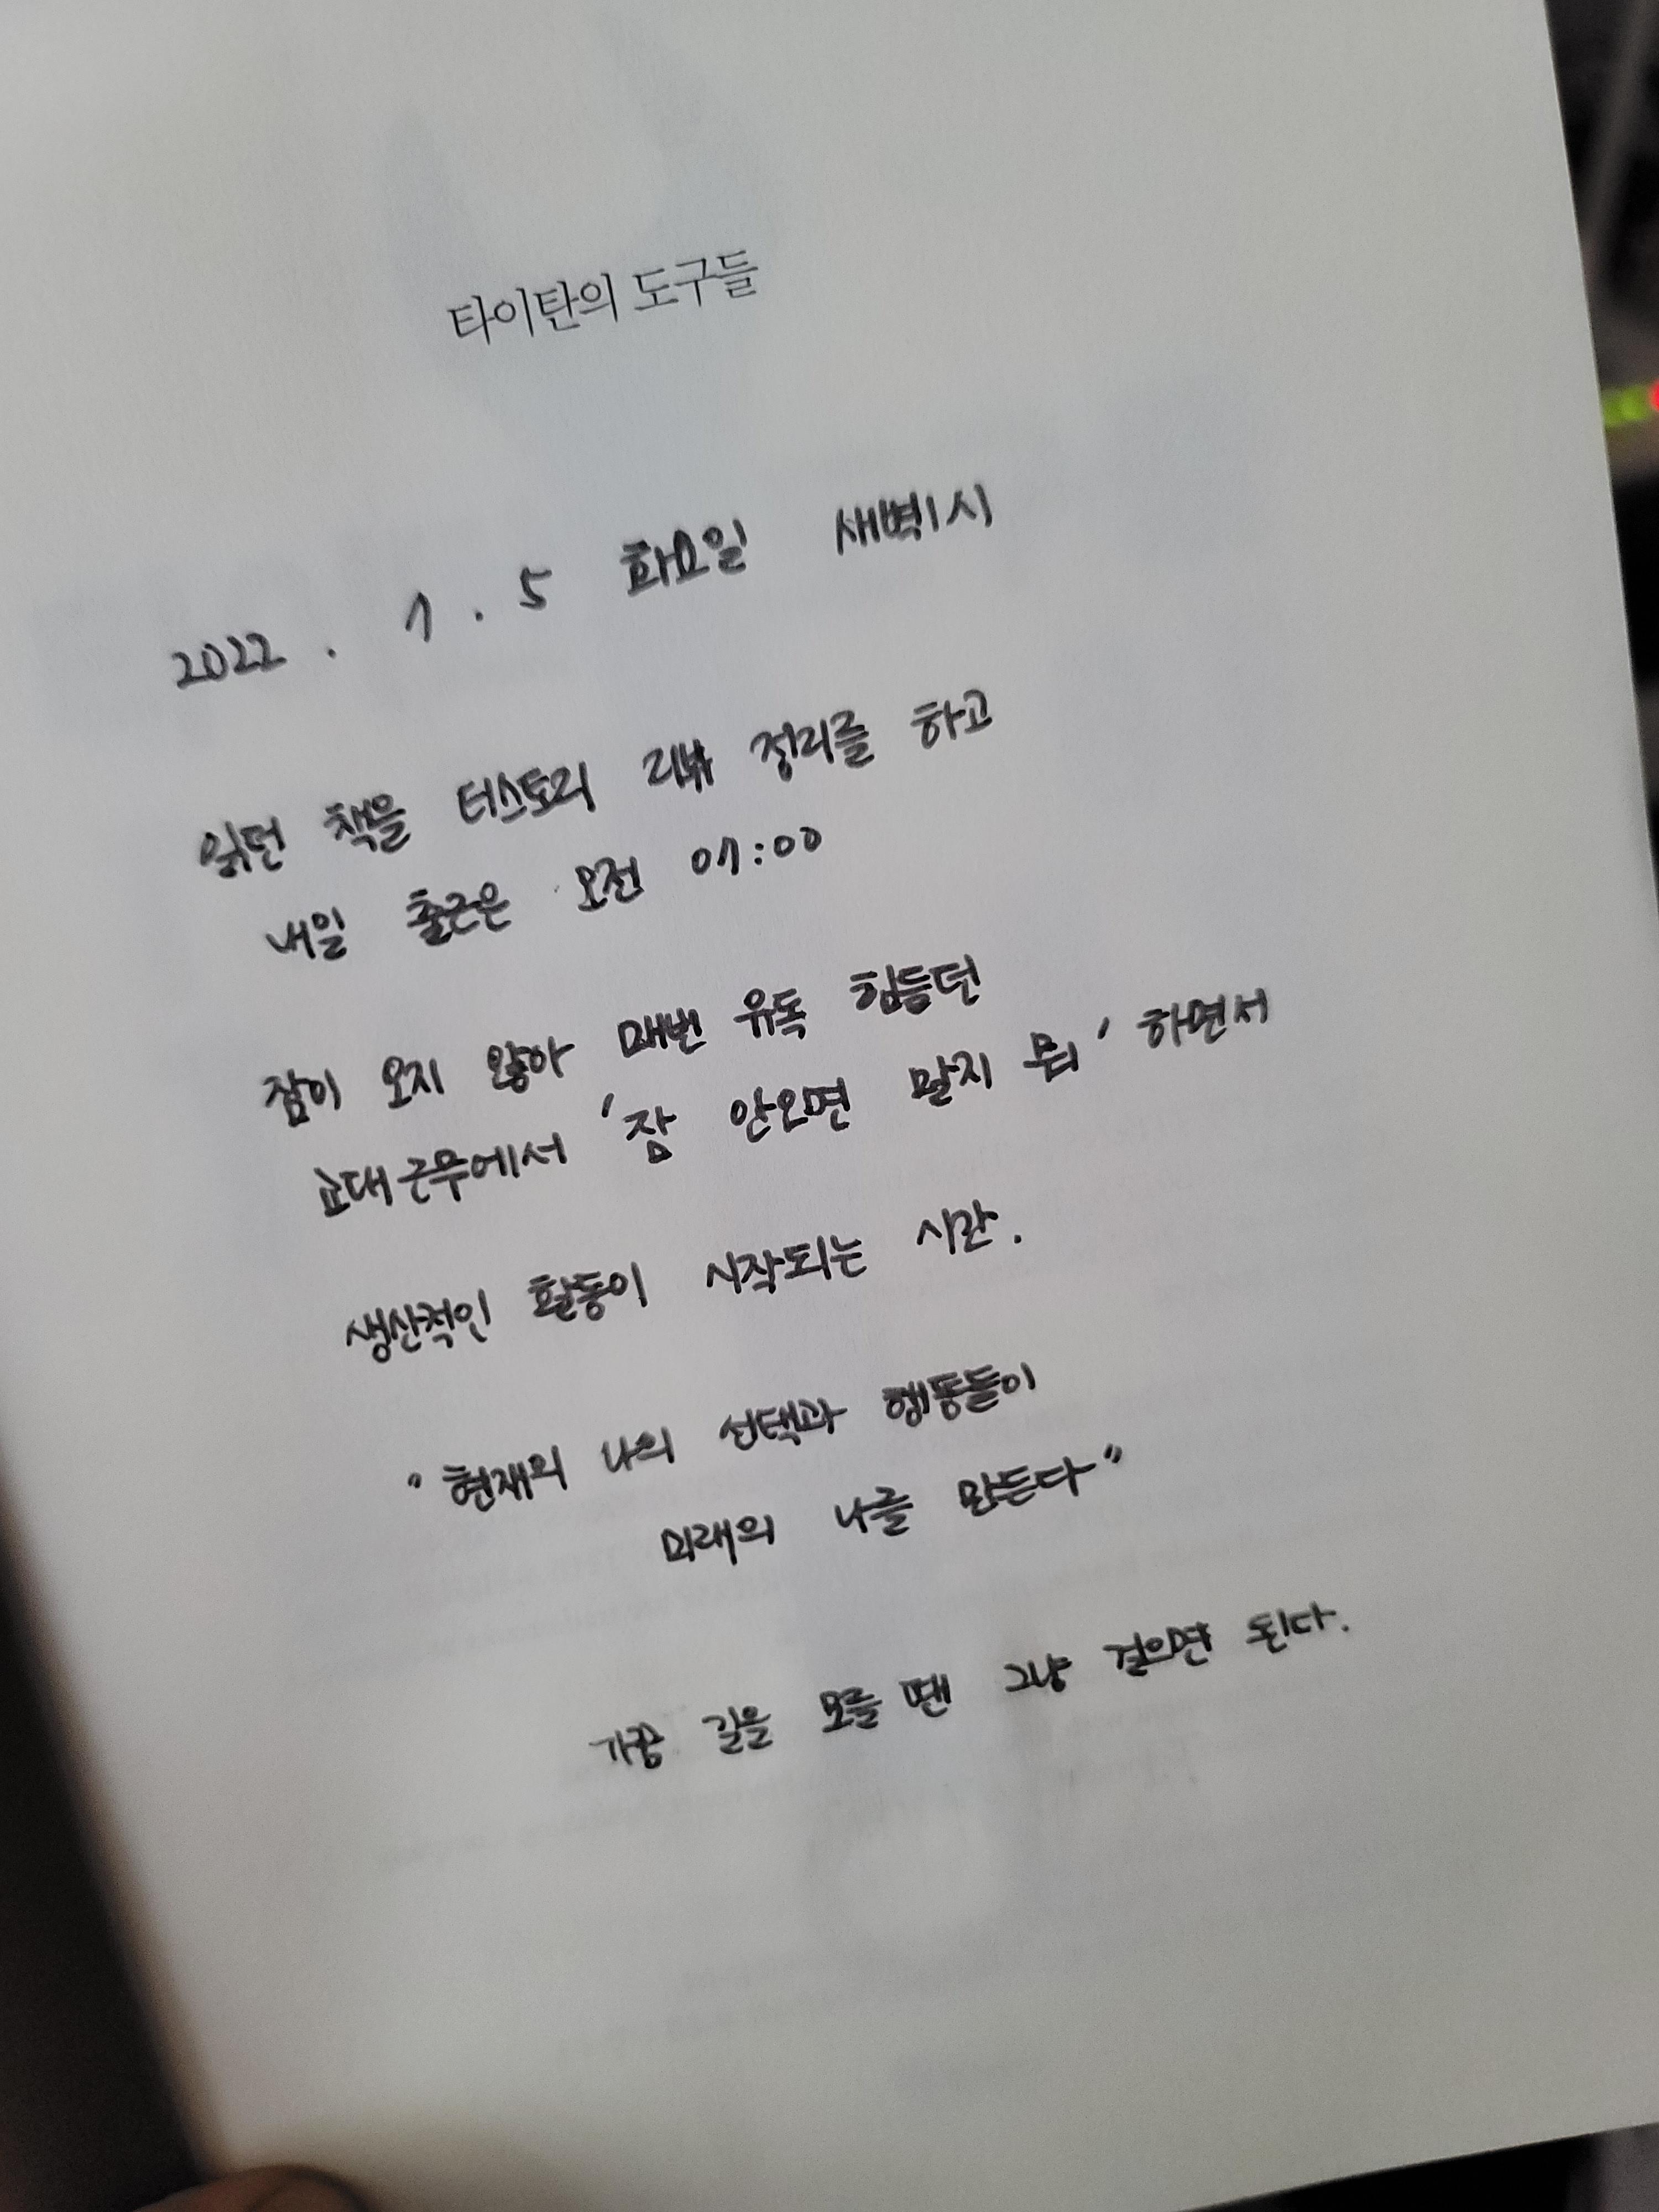 타이탄의 도구들
2022. 7. 5 화요일 새벽1시
읽던 책을 티스토리 리뷰 정리를 하고
내일 출근은 오전 07:00
잠이 오지 않아 매번 유독 힘들던
교대근무에서 '잠 안오면 말지 뭐' 하면서
생산적인 활동이 시작되는 시간.
"현재의 나의 선택과 행동들이
미래의 나를 만든다"
가끔 길을 모를 땐 그냥 걸으면 된다.